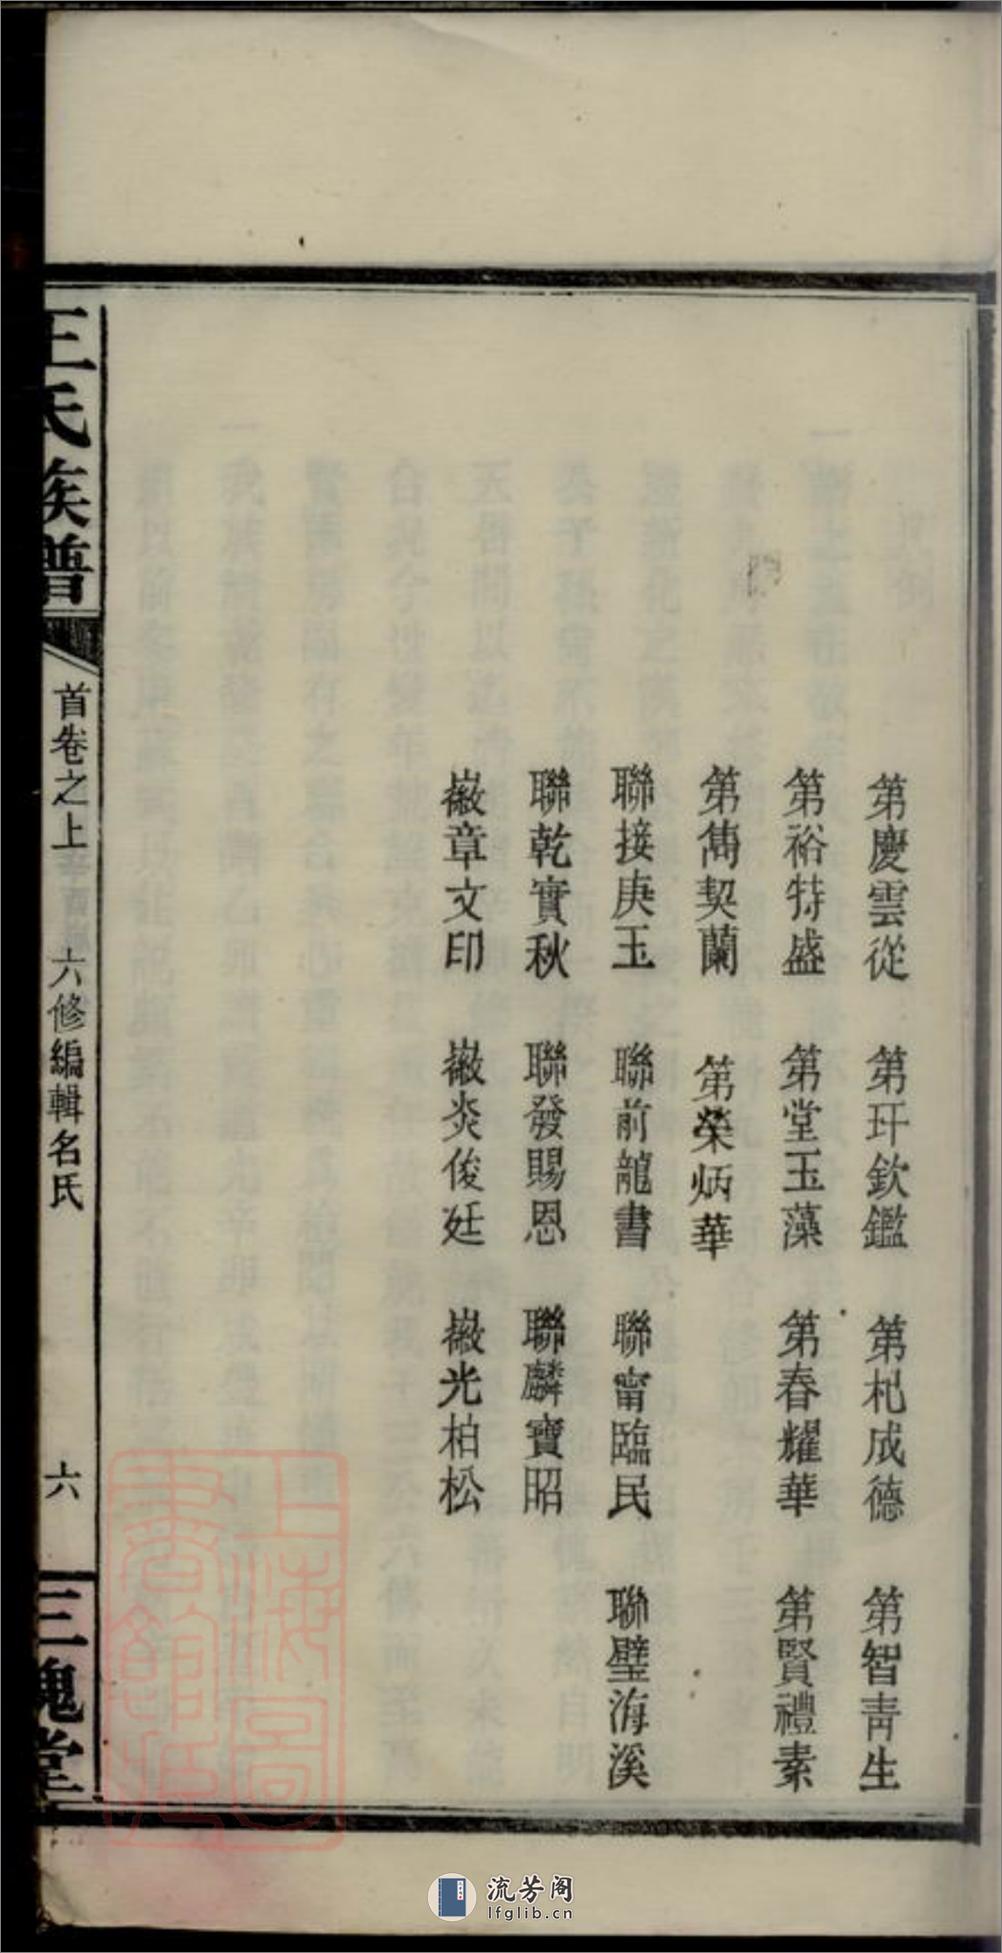 第慶雲從　第玕欽鑑　第杞成德　第智青生
第裕特盛　第堂玉藻　第春耀華　第賢禮素
第雋契蘭　第榮炳華
聯接庚玉　聯前龍書　聯甯臨民　聯璧海溪
聯乾實秋　聯發賜恩　聯麟寶昭
嶶章文印　嶶炎俊廷　嶶光柏松
王氏族譜　首卷之上　六修編輯名氏　六　三槐堂
上海圖書館藏
流芳阁
lfglib.cn